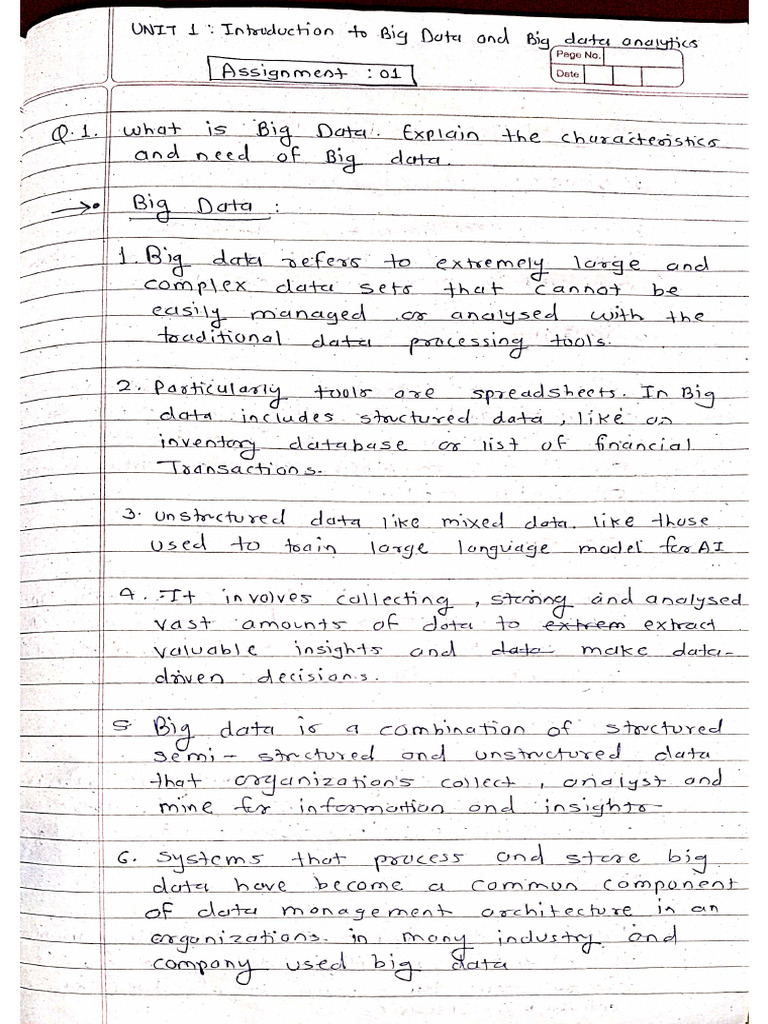 UNIT 1 : Introduction to Big Data and Big data analytics
Page No.
Assignment : 01
Date
Q.1. What is Big Data. Explain the characteristics
and need of Big data.
→• Big Data :
1. Big data refers to extremely large and
complex data sets that cannot be
easily managed or analysed with the
traditional data processing tools.
2. Particularly tools are spreadsheets. In Big
data includes structured data, like an
inventory database or list of financial
Transactions.
3. unstructured data like mixed data. like those
used to train large language model for AI
4. It involves collecting, storing and analysed
vast amounts of data to extrem extract
valuable insights and data make data-
driven decisions.
5 Big data is a combination of structured
semi-structured and unstructured data
that organization's collect, analyst and
mine for information and insights-
6. Systems that process and store big
data have become a common component
of data management architecture in an
organizations. in many industry and
company used big data